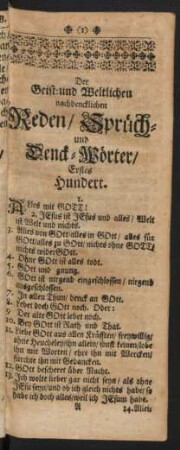 (1)
Der
Geist- und Weltlichen
nachdencklichen
Reden/ Sprüch-
und
Denck-Wörter/
Erstes
Hundert.
1.
Alles mit GOTT!
2. JEsus ist JEsus und alles/ Welt
ist Welt und nichts.
3. Alles von GOtt alles in GOtt/ alles für
GOtt/alles zu GOtt/ nichts ohne GOTT/
nichts wider GOtt.
4. Ohne GOtt ist alles todt.
5. GOtt und gnung.
6. GOtt ist nirgend eingeschlossen/ nirgend
ausgeschlossen.
7. In allen Thun/ denck an GOtt.
8. Lebet doch GOtt noch. Oder:
9. Der alte GOtt lebet noch.
10. Bey GOtt ist Rath und That.
11. Liebe GOtt aus allen Kräfften/ freywillig/
ohne Heucheley/ihn allein/
ihn mit Worten/ ehre ihn mit Wercken/
fürchte ihn mit Gedancken.
12. GOtt bescheret über Nacht.
13. Ich wolte lieber gar nicht seyn/ als ohne
JEsu seyn/und ob ich gleich nichts habe/ so
habe ich doch alles/weil ich JEsum habe.
A